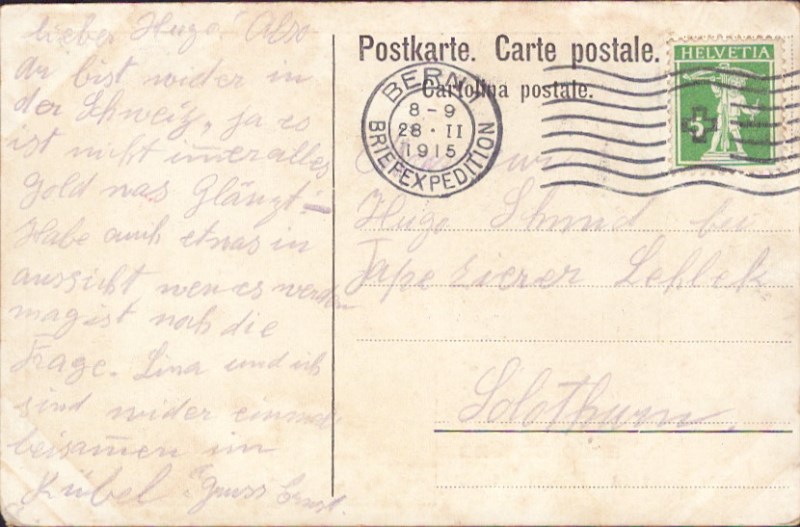 lieber Hugo! Also
du bist wider in
der Schweiz, ja es
ist nicht im̅er alles
Gold was Glänzt!
Habe auch etwas in
aussicht wen es werden
mag ist noch die
Frage. Lina und ich
sind wider einmal
beisam̅en im
Kübel. Gruss Ernst.
Postkarte. Carte postale.
Cartolina postale.
BERN 1
8-9
28·II
1915
BRIEFEXPEDITION
HELVETIA
5
Hugo Shmid bei
Tapezierer
Solothurn